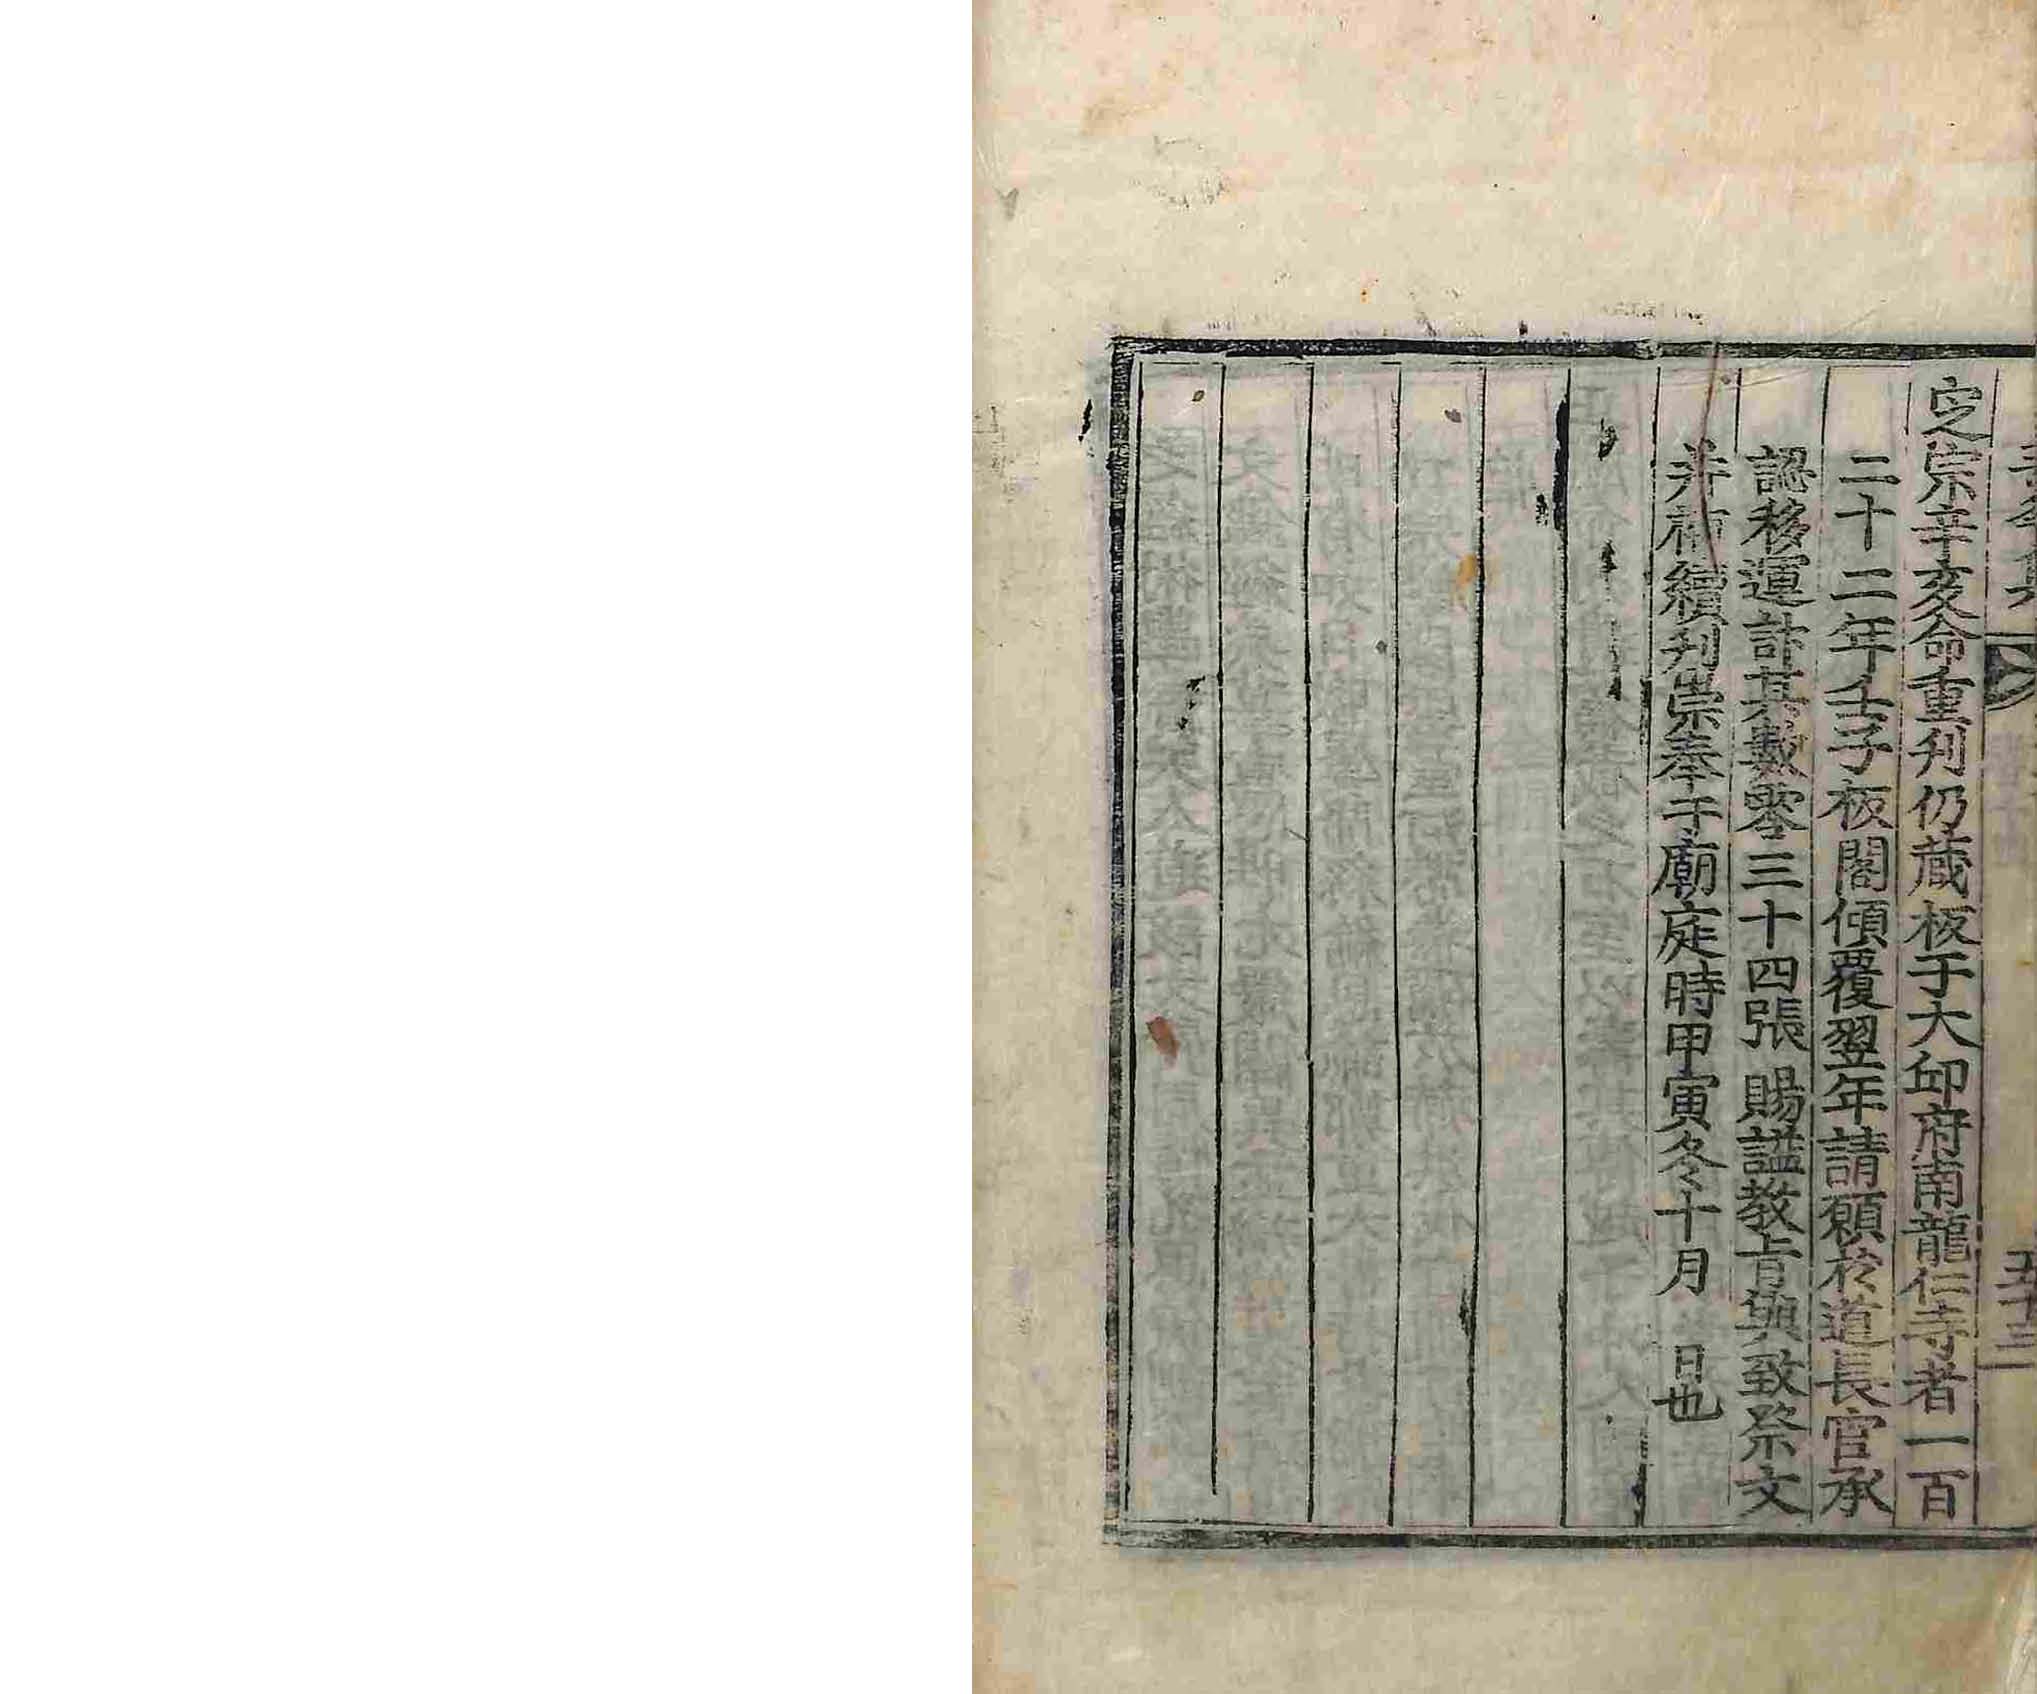 定宗辛亥命重刋仍蔵板于大邱府南龍仁寺者一百
二十二年壬子板閣傾覆翌年請願於道長官承
認移運計其數零三十四張 賜謚教旨與致祭文
并補續刋崇奉于廟庭時甲寅冬十月 日也
五十三